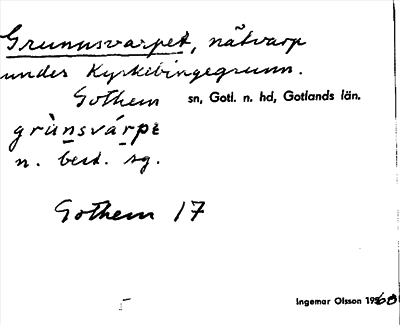 Grunnsvarpet, nätvarp
under Kyrkebingegrunn.
Gothem sn, Gotl. n. hd, Gotlands län.
grùnsvárpɛ
n. best. sg.
Gothem 17
Ingemar Olsson 1960